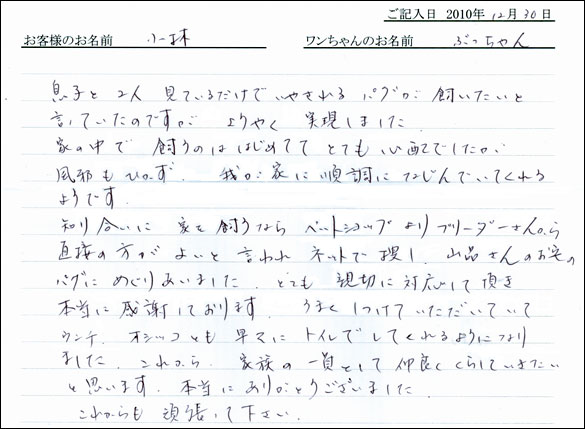 ご記入日 2010年 12月 30日
お客様のお名前 小林 ワンちゃんのお名前 ぶっちゃん
息子と 2人 見ているだけで いやされる パグが 飼いたいと
言っていたのですが ようやく 実現しました
家の中で 飼うのは はじめてで とても 心配でしたが
風邪も ひかず、 我が家に 順調に なじんでいてくれる
ようです.
知り合いに 家で 飼うなら ペットショップより ブリーダーさんから
直接の方が よいと 言われ ネットで 捜し、 山品さんのお宅の
パグに めぐりあいました. とても 親切に 対応して 頂き
本当に 感謝しております. うまく しつけていただいていて
ウンチ、 オシッコとも 早々に トイレで してくれるようになり
ました. これから、 家族の 一員として 仲良く くらしていきたい
と思います. 本当に ありがとうございました
これからも 頑張って下さい.